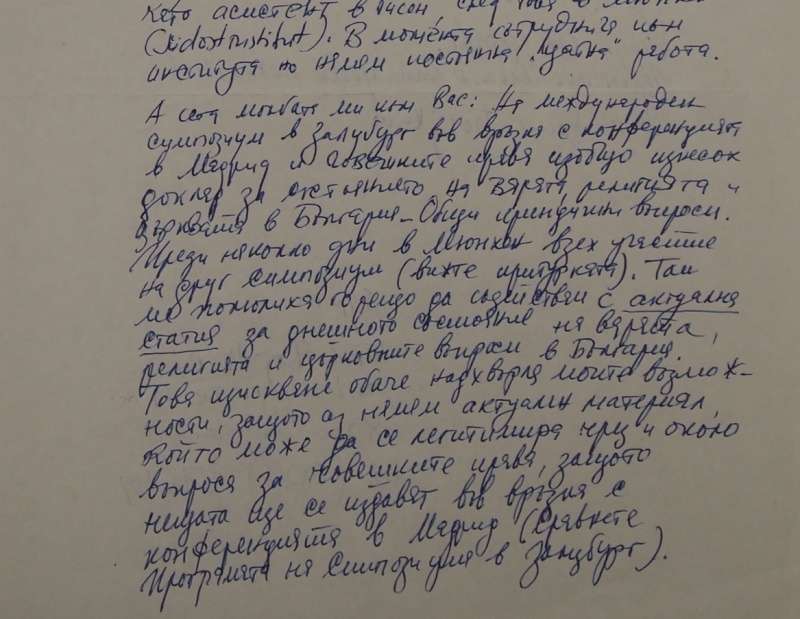 като асистент в Гисен, след това в Мюнхен
(Südostinstitut). В момента сътруднича към
института но нямам постоянна "щатна" работа.
А сега молбата ми към Вас: На международен
симпозиум в Залцбург във връзка с конференцията
в Мадрид и човешките права изобщо изнесох
доклад за състоянието на вярата, религията и
църквата в България – Общи принципни въпроси.
Преди няколко дни в Мюнхен взех участие
на друг симпозиум (вижте притурката). Там
ме помолиха горещо да съдействам с актуална
статия за днешното състояние на вярата,
религията и църковните въпроси в България.
Това изискване обаче надхвърля моите възмож-
ности, защото аз нямам актуален материал,
който може да се легитимира чрез и около
въпроса за човешките права, защото
нещата ще се издават във връзка с
конференцията в Мадрид (сравнете
Програмата на Симпозиума в Залцбург).